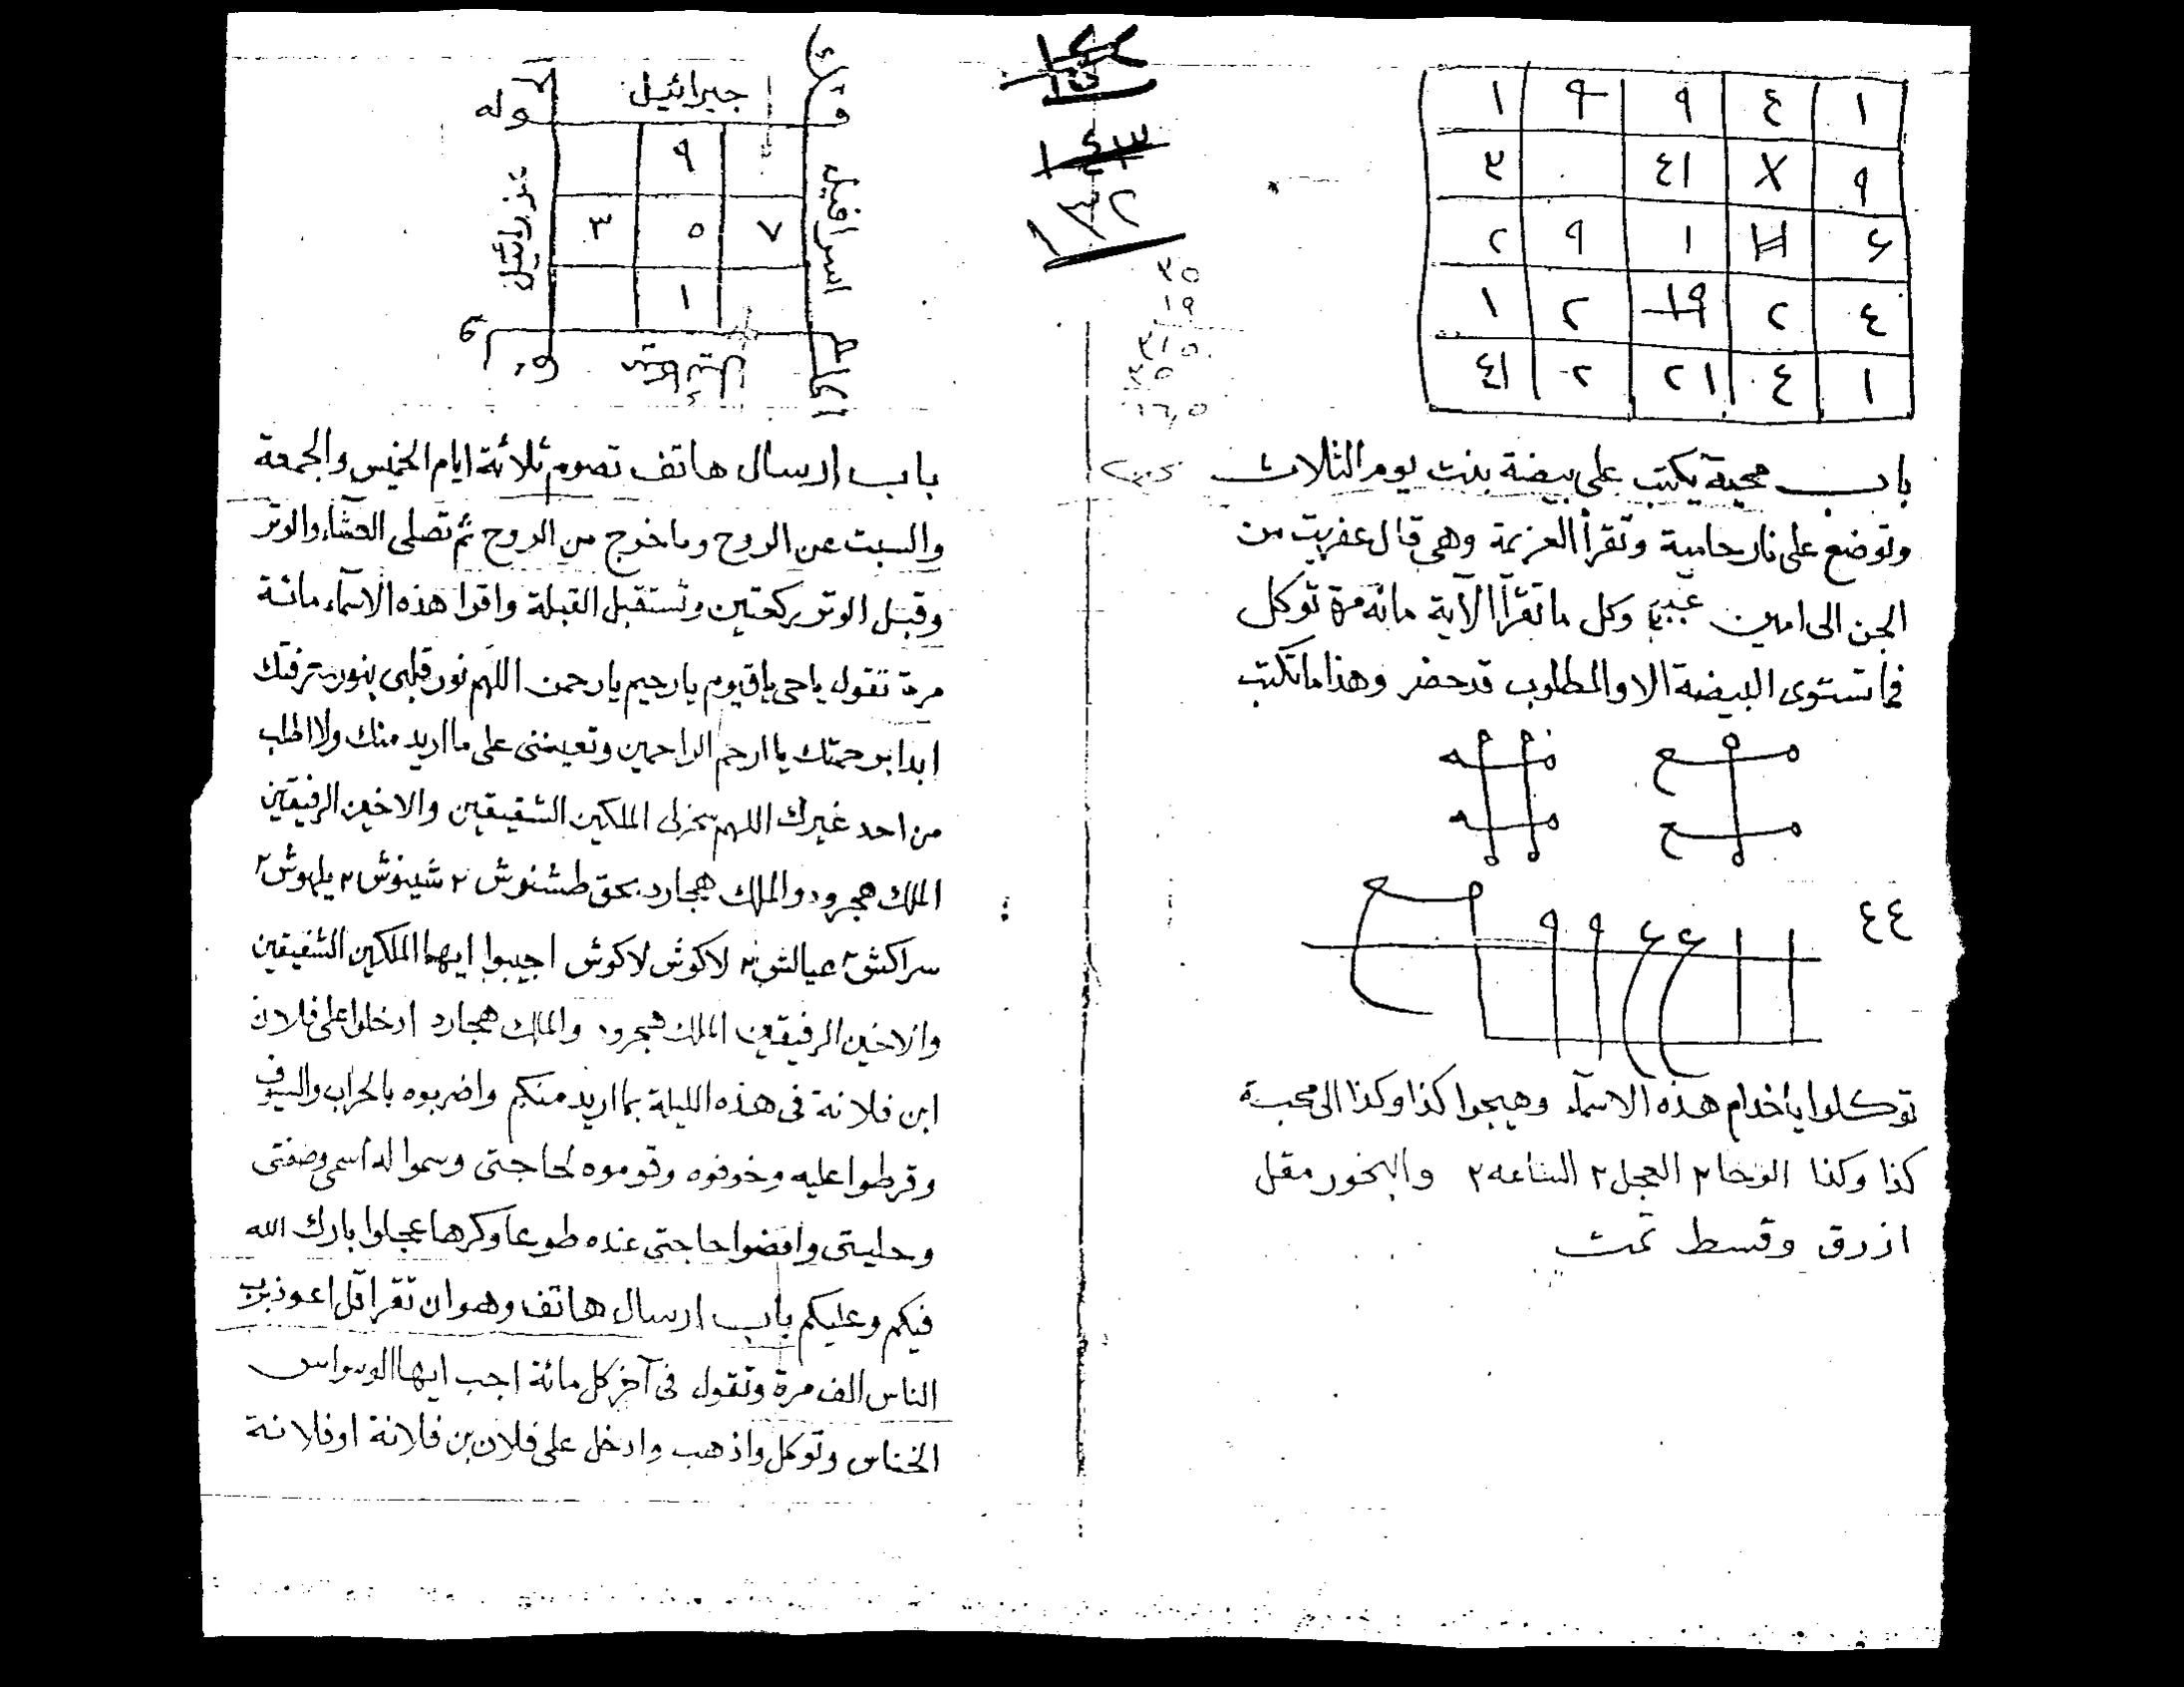 ١ ٤ ٩ ٩ ١
٩ X ٤١ ٣
٤ ١ ٩ ٢
٤ ٢ ١٩ ٢ ١
١ ٤ ٢١ ٢ ٤١
باب محبة يكتب على بيضة بنت يوم الثلاث
وتوضع على نار حامية وتقرأ العزيمة وهى قال عفريت من
الجن الى امين وكل ما تقرأ الآية مائة مرة توكل
فما تستوى البيضة الا والمطلوب قد حضر وهذا ما تكتب
٤٤
توكلوا يا خدام هذه الاسمآء وهيجوا كذا وكذا الى محبة
كذا وكذا الوحا ٢ العجل ٢ الساعه ٢ والبخور مقل
ازرق وقسط تمت
١٤٣
١٣٢
٣٥
١٩
٣١٥
٣٥
جبرائيل
اسرافيل
عزرائيل
٩
٧ ٥ ٣
١
وله
باب ارسال هاتف تصوم ثلاثة ايام الخميس والجمعة
والسبت عن الروح وما خرج من الروح ثم تصلى العشاء والوتر
وقبل الوتر بركعتين وتستقبل القبلة واقرا هذه الاسمآء مائة
مرة تقول ياحى ياقيوم يارحيم يارحمن اللهم نور قلبى بنور
ابدا برحمتك يا ارحم الراحمين وتعيننى على ما اريد منك ولا اطلب
من احد غيرك اللهم سخرلى الملكين الشقيقين والاخين الرفيقين
الملك هجرود والملك هجارد بحق طشنوش ٢ شينوش ٢ يلهوش ٢
سراكش ٢ عيالش ٢ لاكوش لاكوش اجيبوا ايها الملكين الشقيقين
والاخين الرفيقين الملك هجرود والملك هجارد ادخلوا على فلان
ابن فلانة فى هذه الليلة بما اريد منكم واضربوه بالحراب والسيوف
وقرطوا عليه وخوفوه وقوموه لحاجتى وسموا له اسمى وصفتى
وحليتى واقضوا حاجتى عنده طوعا وكرها عجلوا بارك الله
فيكم وعليكم باب ارسال هاتف وهو ان تقرا قل اعوذ برب
الناس الف مرة وتقول فى آخر كل مائة اجب ايها الوسواس
الخناس وتوكل واذهب وادخل على فلان بن فلانة او فلانة